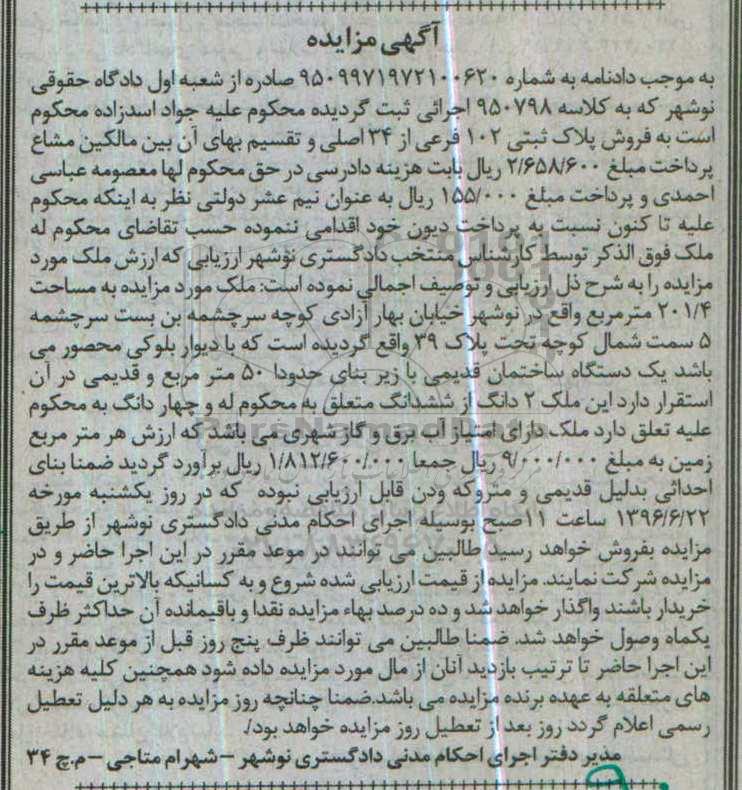 آگهی مزایده
به موجب دادنامه به شماره ۹۵۰۹۹۷۱۹۷۲۱۰۰۶۲۰ صادره از شعبه اول دادگاه حقوقی
نوشهر که به کلاسه ۹۵۰۷۹۸ اجرائی ثبت گردیده محکوم علیه جواد اسدزاده محکوم
است به فروش پلاک ثبتی ۱۰۲ فرعی از ۳۴ اصلی و تقسیم بهای آن بین مالکین مشاع
پرداخت مبلغ ۲/۶۵۸/۶۰۰ ریال بابت هزینه دادرسی در حق محکوم لها معصومه عباسی
احمدی و پرداخت مبلغ ۱۵۵/۰۰۰ ریال به عنوان نیم عشر دولتی نظر به اینکه محکوم
علیه تا کنون نسبت به پرداخت دیون خود اقدامی ننموده حسب تقاضای محکوم له
ملک فوق الذکر توسط کارشناس منتخب دادگستری نوشهر ارزیابی که ارزش ملک مورد
مزایده را به شرح ذل ارزیابی و توصیف اجمالی نموده است: ملک مورد مزایده به مساحت
۲۰۱/۴ مترمربع واقع در نوشهر خیابان بهار آزادی کوچه سرچشمه بن بست سرچشمه
۵ سمت شمال کوچه تحت پلاک ۳۹ واقع گردیده است که با دیوار بلوکی محصور می
باشد یک دستگاه ساختمان قدیمی با زیر بنای حدودا ۵۰ متر مربع و قدیمی در آن
استقرار دارد این ملک ۲ دانگ از ششدانگ متعلق به محکوم له و چهار دانگ به محکوم
علیه تعلق دارد ملک دارای امتیاز آب برق و گاز شهری می باشد که ارزش هر متر مربع
زمین به مبلغ ۹/۰۰۰/۰۰۰ ریال جمعا ۱/۸۱۲/۶۰۰/۰۰۰ ریال برآورد گردید ضمنا بنای
احداثی بدلیل قدیمی و متروکه ودن قابل ارزیابی نبوده که در روز یکشنبه مورخه
۱۳۹۶/۶/۲۲ ساعت ۱۱صبح بوسیله اجرای احکام مدنی دادگستری نوشهر از طریق
مزایده بفروش خواهد رسید طالبین می توانند در موعد مقرر در این اجرا حاضر و در
مزایده شرکت نمایند. مزایده از قیمت ارزیابی شده شروع و به کسانیکه بالاترین قیمت را
خریدار باشند واگذار خواهد شد و ده درصد بهاء مزایده نقدا و باقیمانده آن حداکثر ظرف
یکماه وصول خواهد شد. ضمنا طالبین می توانند ظرف پنج روز قبل از موعد مقرر در
این اجرا حاضر تا ترتیب بازدید آنان از مال مورد مزایده داده شود همچنین کلیه هزینه
های متعلقه به عهده برنده مزایده می باشد.ضمنا چنانچه روز مزایده به هر دلیل تعطیل
رسمی اعلام گردد روز بعد از تعطیل روز مزایده خواهد بود/.
مدیر دفتر اجرای احکام مدنی دادگستری نوشهر –شهرام متاجی –م.چ ۳۴